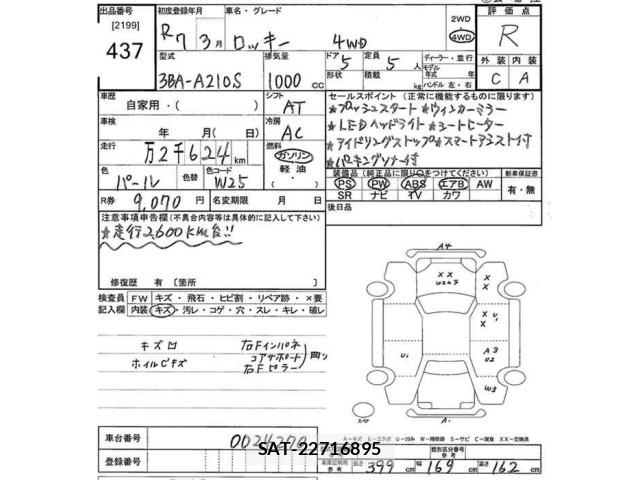 出品番号 初度登録年月 車名・グレード 2WD 評価点
[2199] R7 3月 ロッキー 4WD 4WD R
437 型式 排気量 ドア 定員 ディーラー・並行 外装 内装
3BA-A210S 1000 cc 5 5人 モデル年式 年 C A
形状 積載 kg ハンドル 左・右
車歴 シフト セールスポイント (正常に機能するものに限ります)
自家用・( ) AT ★プッシュスタート★ウィンカーミラー
車検 冷房 ★LEDヘッドライト★シートヒーター
年 月( 日) AC ★アイドリングストップ★スマートアシスト付
走行 燃料 ★パーキングソナー付
万2千624km ガソリン
軽油
色 色替 色コード 装備品 (純正品に限り○をつけてください) 新車保証書
パール W25 PS PW ABS エアB AW 有・無
SR ナビ TV カワ
R券 9,070円 名変期限 月 日 後日品
注意事項申告欄(不具合内容等は具体的に記入して下さい)
★走行2,600km台!!
修復歴 有 [箇所 ]
検査員 FW キズ・飛石・ヒビ割・リペア跡・×要
記入欄 内装 キズ・汚レ・コゲ・穴・スレ・キレ・破レ
キズ凹 右Fインパネ
ホイルCキズ コアサポート
右Fピラー
A4
XX
W2 4 F
XX
XX U1
U1 A3
U2
W3
スペア
A-キズ E-エクボ U-凹み W-補修跡 S-サビ C-腐食 XX-交換済
車台番号 0024270
SAT-22716895
登録番号 長さ 399 cm 幅 169 cm 高さ 162 cm